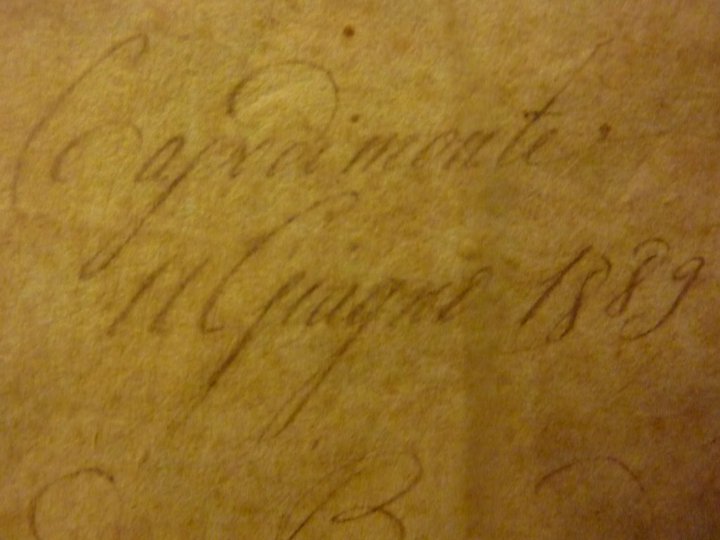 Capodimonte
11 Giugno 1889